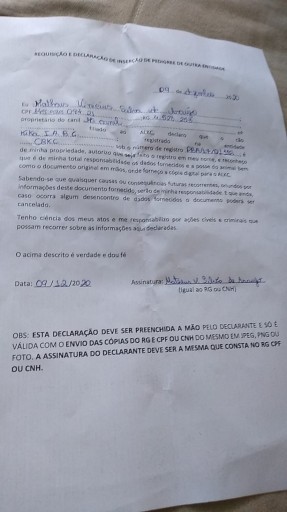 REQUISIÇÃO E DECLARAÇÃO DE INSERÇÃO DE PEDIGREE DE OUTRA ENTIDADE
09 de 20
Eu Matheus
CPF
proprietário do canil
filiado ao ALKC, declaro que o cão
Kika registrado na entidade
CBKC sob o número de registro
de minha propriedade, autorizo que seja feito o registro em meu nome, e reconheço
que é de minha total responsabilidade os dados fornecidos e a posse do animal bem
como o documento original em mãos, onde forneço a cópia digital para o ALKC.
Sabendo-se que quaisquer causas ou consequências futuras recorrentes, oriundos por
informações deste documento fornecido, serão de minha responsabilidade. E que ainda,
caso ocorra algum desencontro de dados fornecidos o documento poderá ser
cancelado.
Tenho ciência dos meus atos e me responsabilizo por ações cíveis e criminais que
possam recorrer sobre as informações aqui declaradas.
O acima descrito é verdade e dou fé
Data: 09/12/2020 Assinatura: Matheus V
(Igual ao RG ou CNH)
OBS: ESTA DECLARAÇÃO DEVE SER PREENCHIDA A MÃO PELO DECLARANTE E SÓ É
VÁLIDA COM O ENVIO DAS CÓPIAS DO RG E CPF OU CNH DO MESMO EM JPEG, PNG OU
FOTO. A ASSINATURA DO DECLARANTE DEVE SER A MESMA QUE CONSTA NO RG CPF
OU CNH.